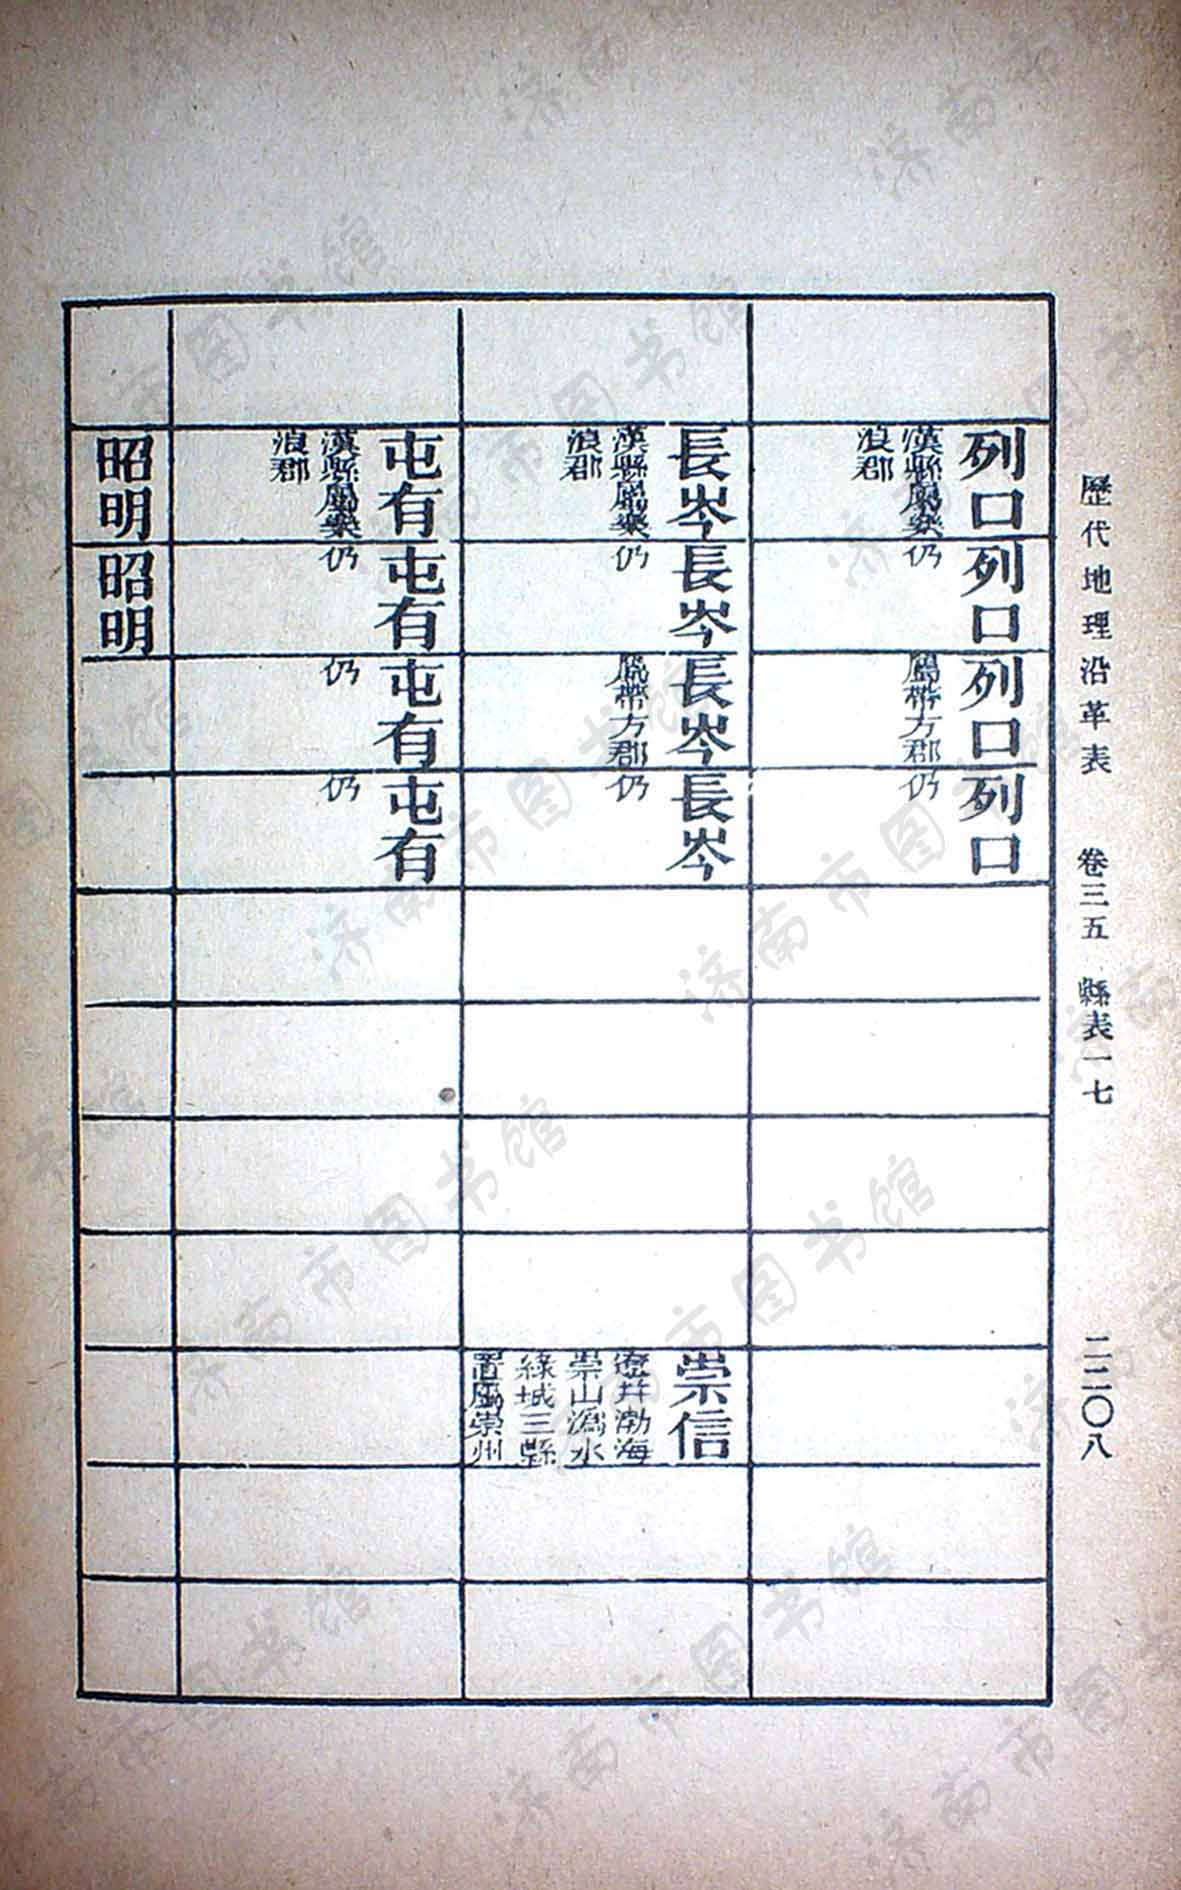 歷代地理沿革表 卷三五 縣表一七 二二〇八
列口
漢縣屬樂
浪郡
列口
仍
列口
屬帶方郡
列口
仍
長岑
漢縣屬樂
浪郡
長岑
仍
長岑
屬帶方郡
長岑
仍
崇信
遼并渤海
崇山潙水
緑城三縣
置屬崇州
屯有
漢縣屬樂
浪郡
屯有
仍
屯有
仍
屯有
仍
昭明
昭明
济南市图书馆